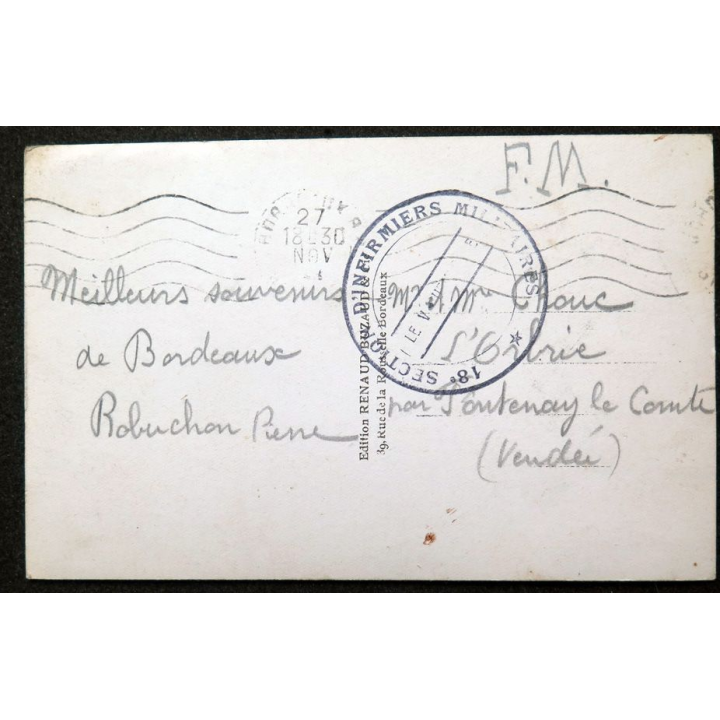 F.M.
27
18 30
NOV
18e SECTION D'INFIRMIERS MILITAIRES
LE
Meilleurs souvenirs
de Bordeaux
Robuchon Pierre
Edition RENAUD BUZAUD
39, Rue de la Rousselle Bordeaux
Mr & Mme
L'Orbrie
par Fontenay le Comte
(Vendée)